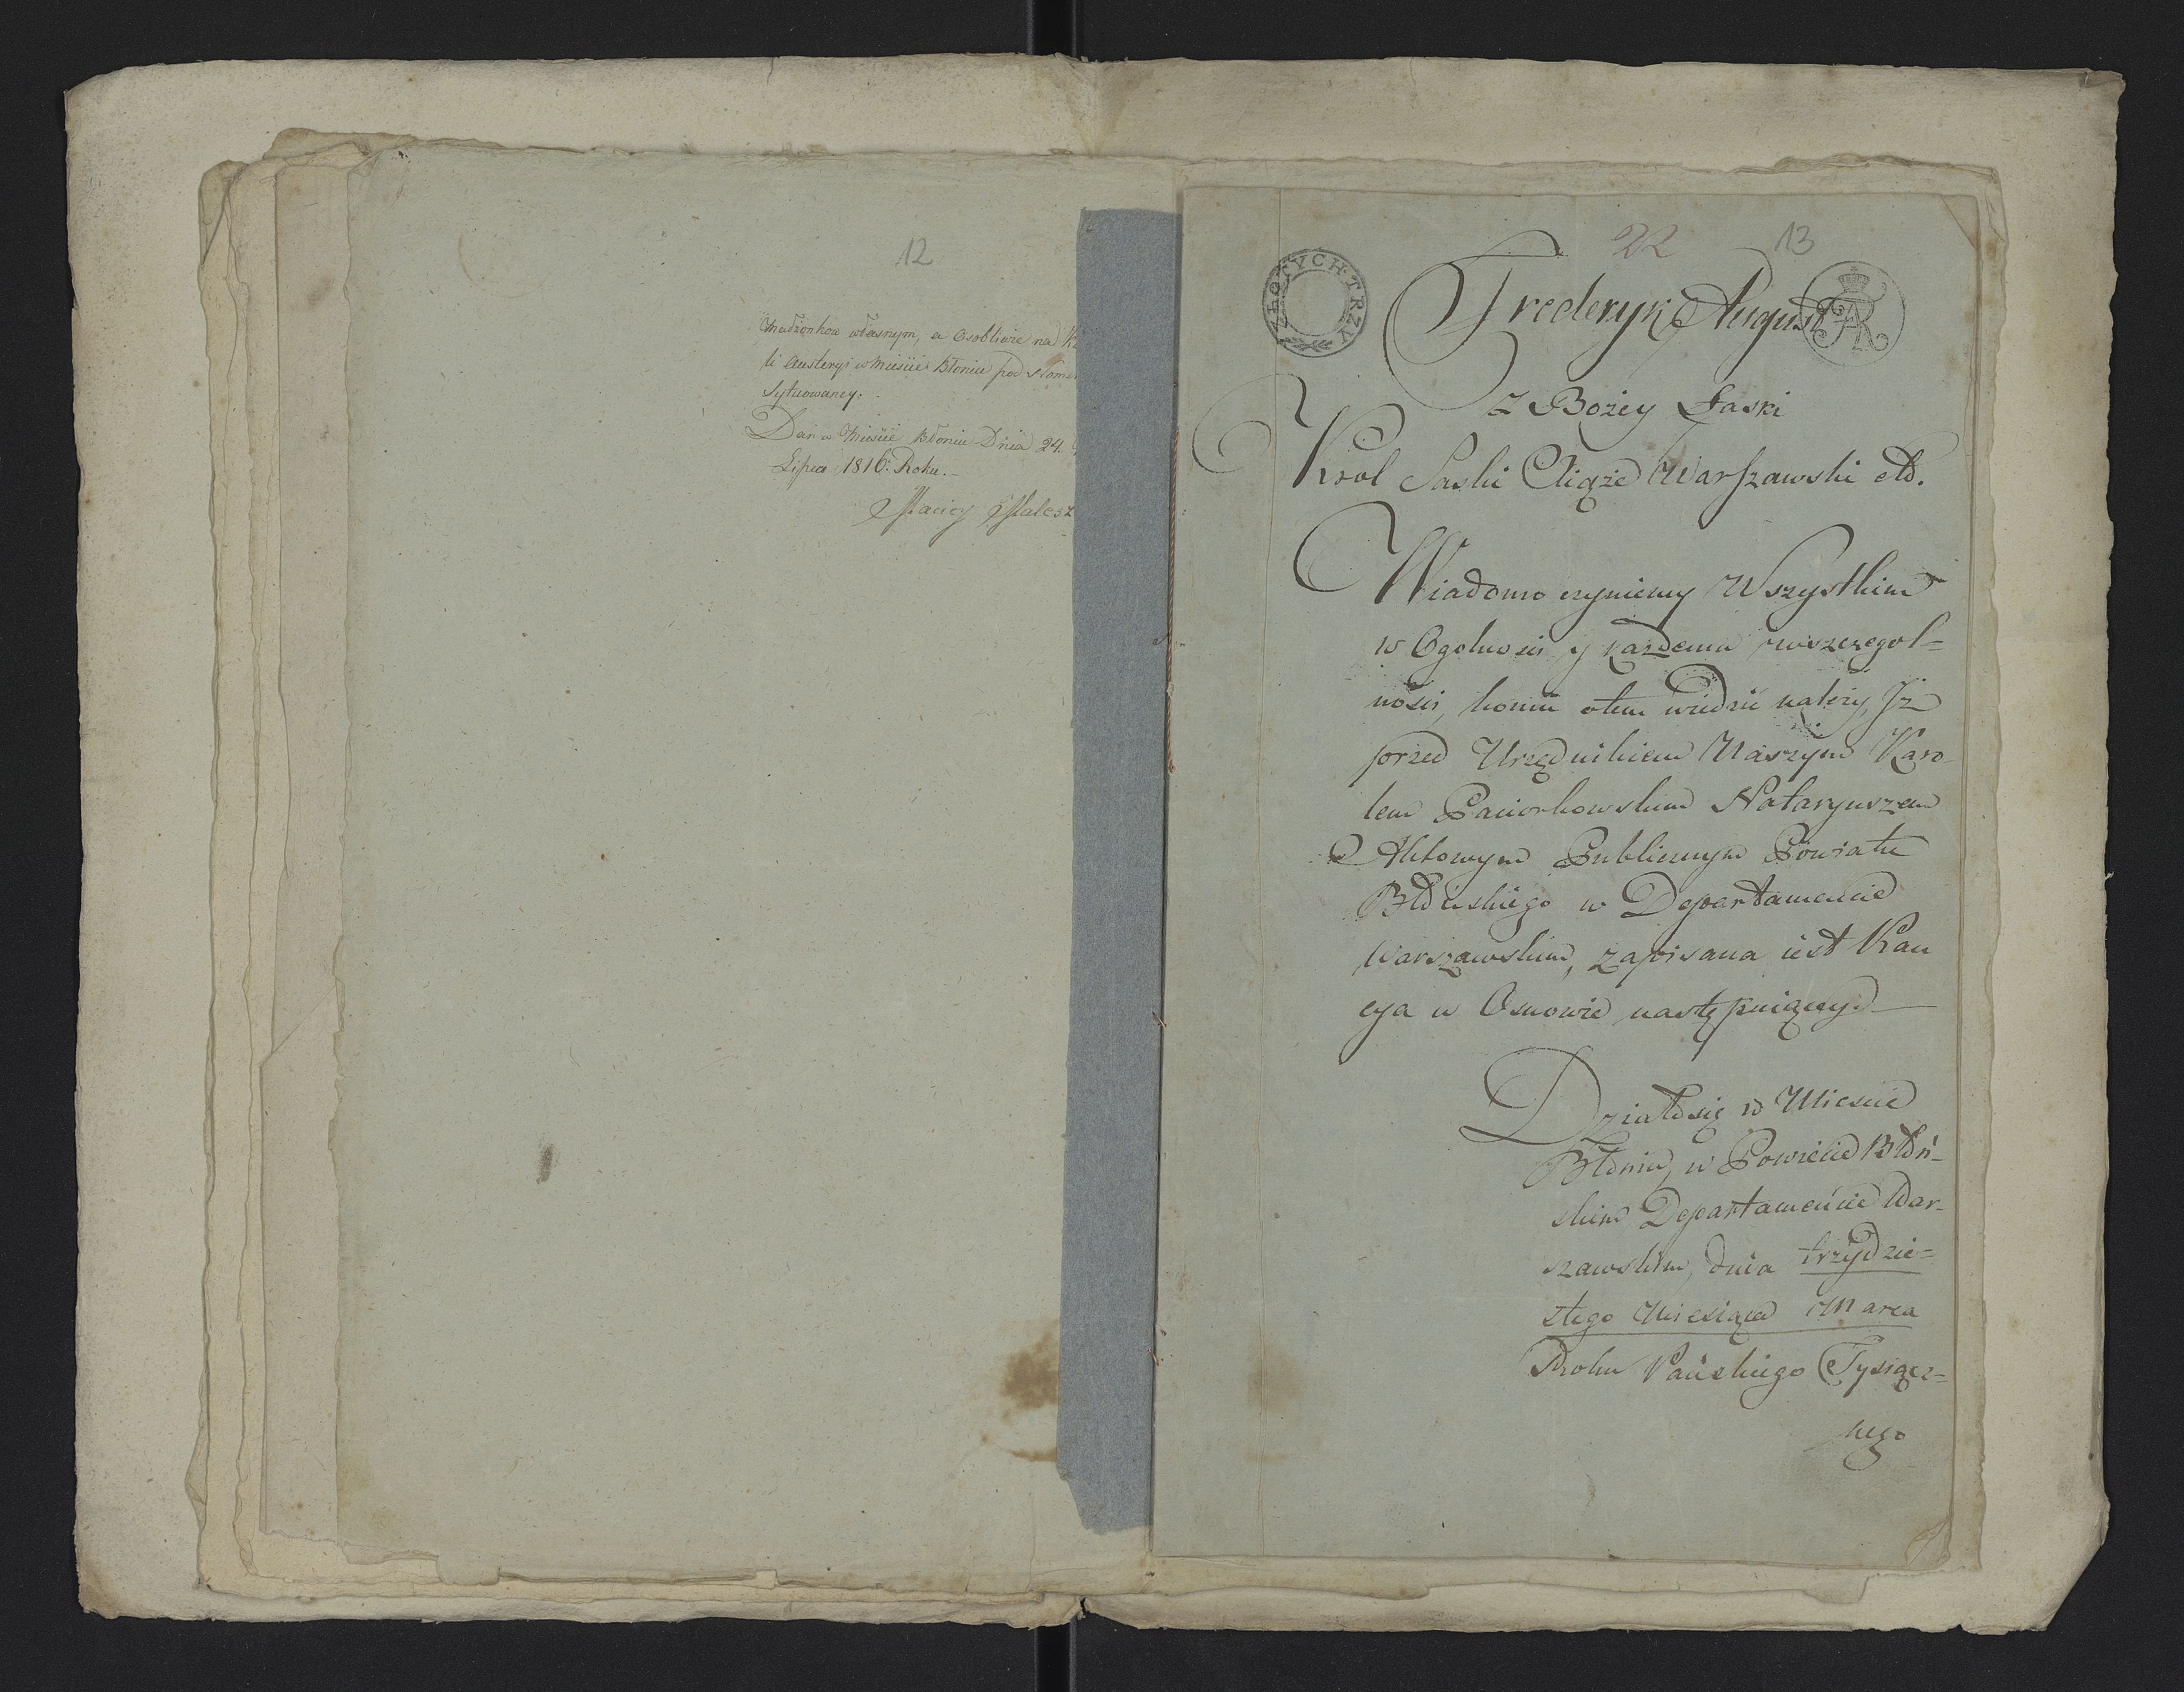 12
Maiątkow własnym, a Osobliwie na
li Austeryi w Mieście Błoniu pod
Sytuowaney.
Dan w Mieście Błoniu Dnia 24.
Lipca 1816. Roku.
Maciey Malesz
22
13
ZŁOTYCH TRZY
FAR
Fredeyryk August
z Bożey Łaski
Krol Saski Xiąże Warszawski etd.
Wiadomo czyniemy Wszystkim
w Ogolności y każdemu wszczegol=
ności, komu otem wiedzić należy, Jż
przed Urzędnikiem Naszym Karo-
lem Paciorkowskim Notaryuszem
Aktowym Publicznym Powiatu
Błońskiego w Departamencie
Warszawskim, zapisana iest Kau
cya w Osnowie następuiącey
Działo się w Mieście
Błoniu, w Powiecie Błoń-
skim Departamencie War-
szawskim, dnia trzydzie=
stego Miesiąca Marca
Roku Pańskiego Tysiącz=
nego